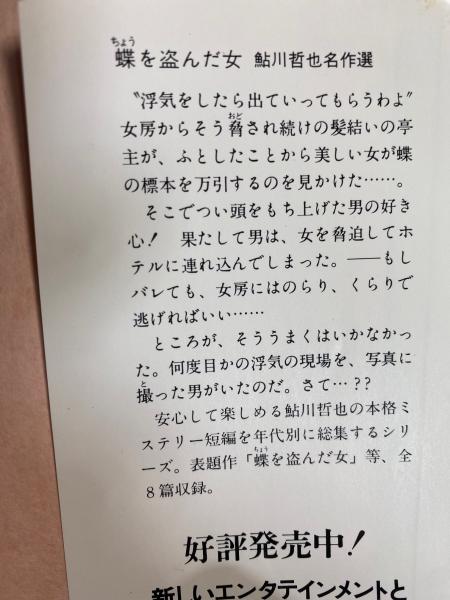 ちょう
蝶を盗んだ女 鮎川哲也名作選
〝浮気をしたら出ていってもらうわよ〟
おど
女房からそう脅され続けの髪結いの亭
主が、ふとしたことから美しい女が蝶
の標本を万引するのを見かけた……。
そこでつい頭をもち上げた男の好き
心! 果たして男は、女を脅迫してホ
テルに連れ込んでしまった。――もし
バレても、女房にはのらり、くらりで
逃げればいい……
ところが、そううまくはいかなかっ
た。何度目かの浮気の現場を、写真に
と
撮った男がいたのだ。さて…??
安心して楽しめる鮎川哲也の本格ミ
ステリー短編を年代別に総集するシリ
ちょう
ーズ。表題作「蝶を盗んだ女」等、全
8篇収録。
好評発売中!
新しいエンタテインメントと